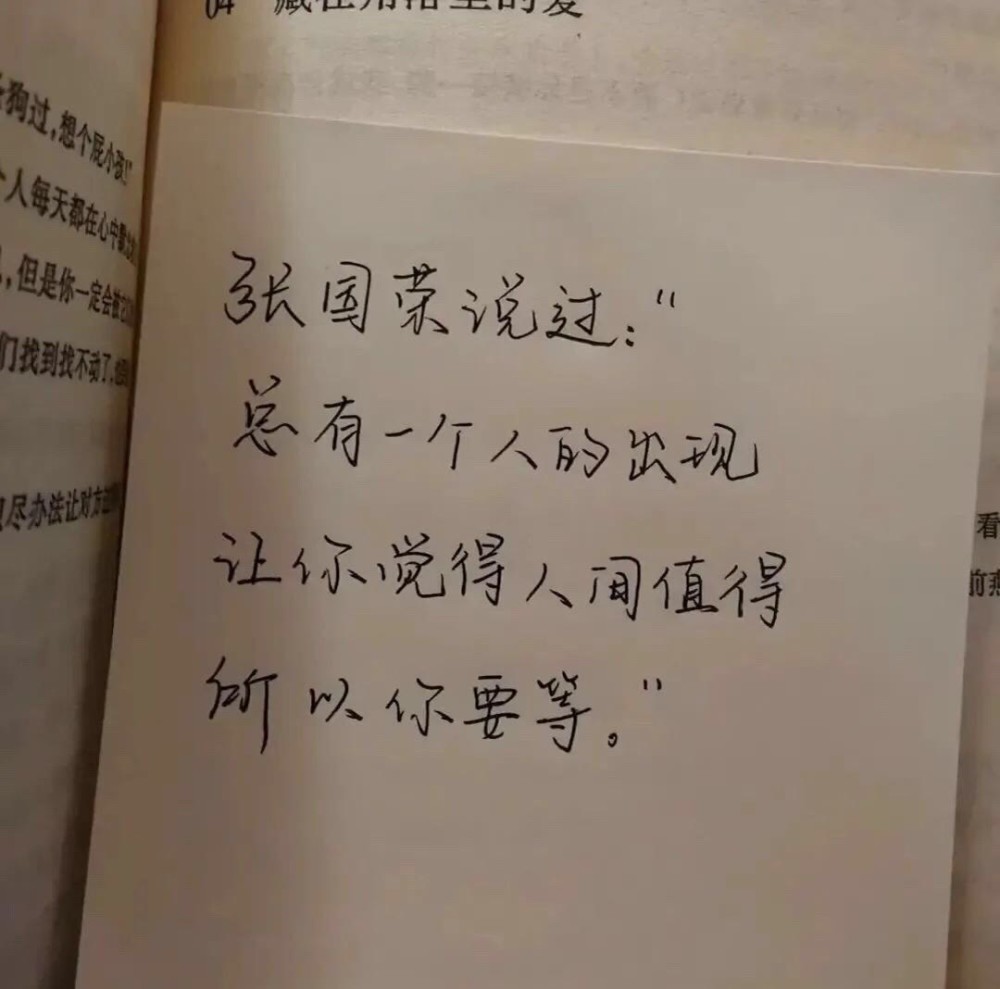 04 藏在角落里的爱
狗过，想个屁小孩!"
个人每天都在心中默
，但是你一定会被它
们找到找不动了，
尽办法让对方
张国荣说过："
总有一个人的出现
让你觉得人间值得
所以你要等。"
看
前